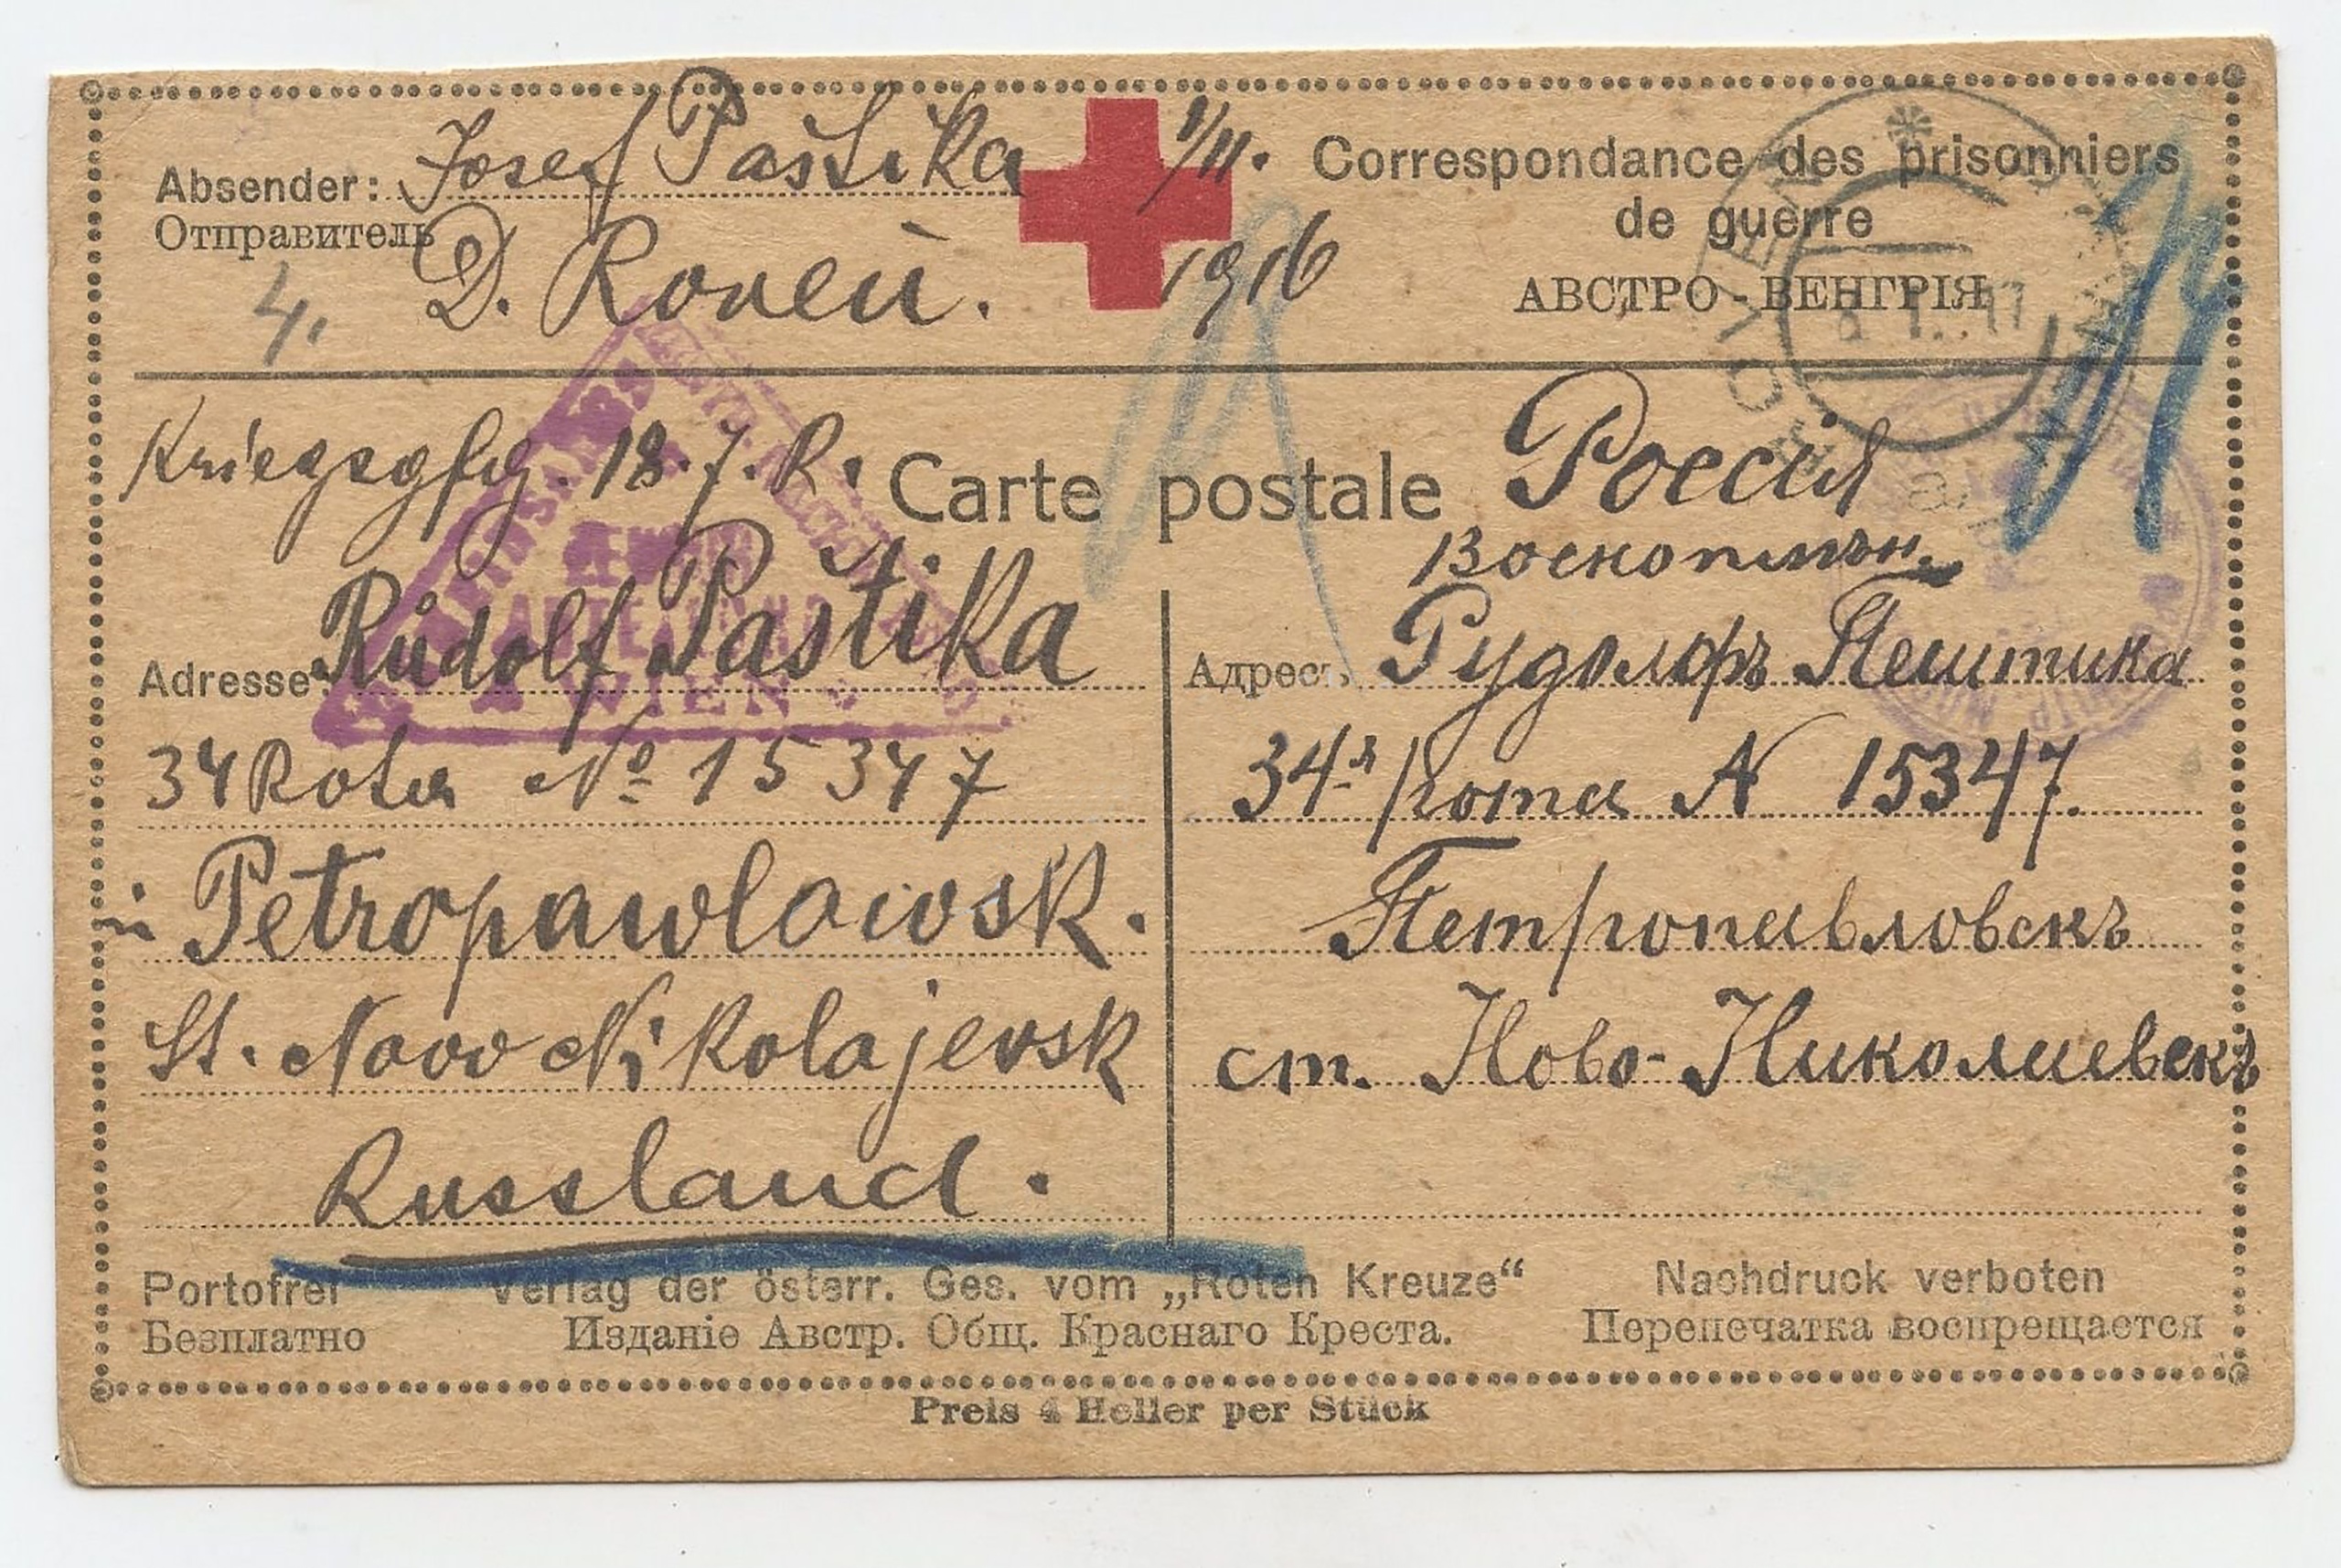 Absender: Josef Paštika
1/11.
Correspondance des prisonniers
Отправитель
de guerre
D. Roveň.
1916
АВСТРО-ВЕНГРІЯ
4.
Kriegsgfg. 18. J. R.
Carte postale
Россія
Военопленн.
Adresse: Rudolf Paštika
Адрес: Рудолфъ Пештика
34 Rota № 15347
34-я рота N 15347.
in Petropawlowsk.
Петропавловскъ
St. Novo Nikolajevsk
ст. Ново-Николаевскъ
Russland.
Portofrei
Verlag der österr. Ges. vom „Roten Kreuze“
Nachdruck verboten
Безплатно
Изданіе Австр. Общ. Краснаго Креста.
Перепечатка воспрещается
Preis 4 Heller per Stück
WIEN